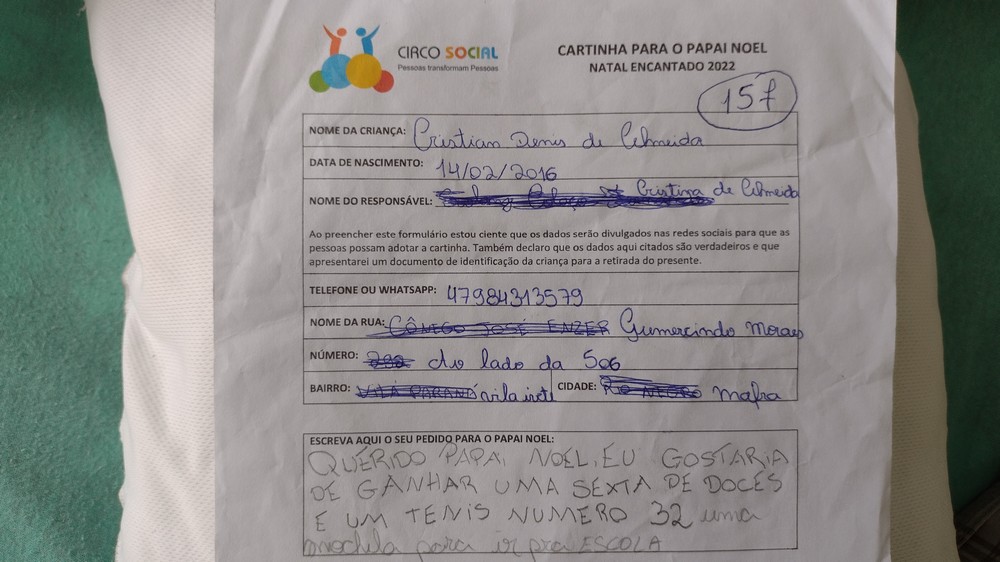 CIRCO SOCIAL
Pessoas transformam Pessoas
CARTINHA PARA O PAPAI NOEL
NATAL ENCANTADO 2022
157
NOME DA CRIANÇA: Cristian Denis de Almeida
DATA DE NASCIMENTO: 14/02/2016
NOME DO RESPONSÁVEL: Cristina de Almeida
Ao preencher este formulário estou ciente que os dados serão divulgados nas redes sociais para que as
pessoas possam adotar a cartinha. Também declaro que os dados aqui citados são verdadeiros e que
apresentarei um documento de identificação da criança para a retirada do presente.
TELEFONE OU WHATSAPP: 47984313579
NOME DA RUA: CÔNEGO JOSÉ ENZER Gumercindo Moraes
NÚMERO: do lado da 506
BAIRRO: VILA PARANÁ vila ivete CIDADE: RIO NEGRO mafra
ESCREVA AQUI O SEU PEDIDO PARA O PAPAI NOEL:
QUERIDO PAPAI NOEL, EU GOSTARIA
DE GANHAR UMA SEXTA DE DOCES
E UM TENIS NUMERO 32 uma
mochila para ir pra ESCOLA